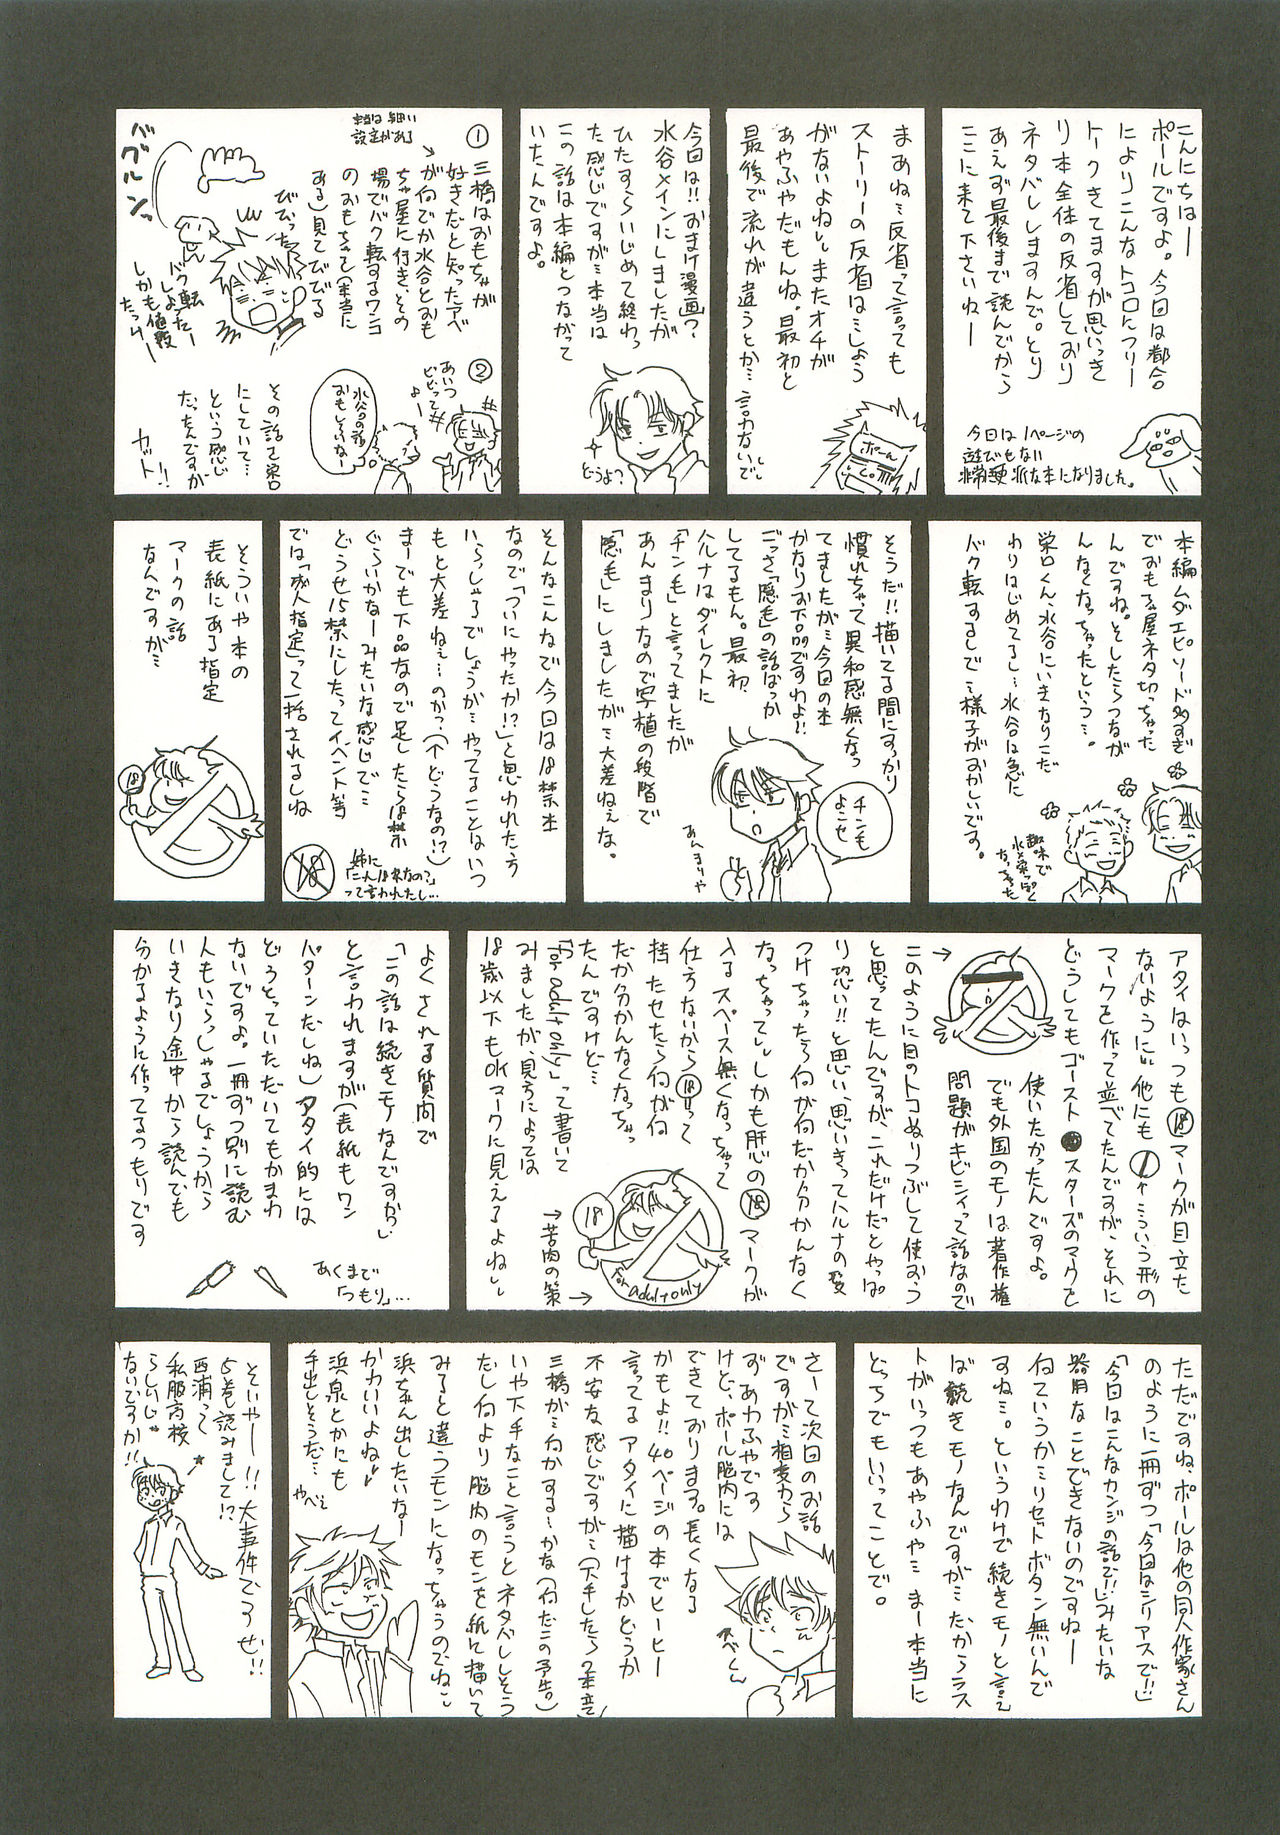 こんにちはー
ポールですよ。今回は都合
によりこんなトコロにフリー
トークきてますが思いっき
り本全体の反省しており
ネタバレしますんで。とり
あえず最後まで読んでから
ここに来て下さいねー
今日は1ページの
遊びもない
硬派な本になりました。
まあね…反省って言っても
ストーリーの反省は…しよう
がないよね…またオチが
あやふやだもんね。最初と
最後で流れが違うとか…言わないで。
ポーん
今回は!!おまけ漫画?
水谷メインにしましたが
ひたすらいじめて終わっ
た感じですが…本当は
この話は本編とつながって
いたんですよ。
どうよ?
①
三橋はおもちゃが
好きだと知ったアベ
が何でか水谷とおも
ちゃ屋に付き、その
場でバク転するワンコ
のおもちゃで(本当に
ある)見てびびる
本当は細い
設定がある
バグルンっ
びびった
バク転
しよったー
しかも値段
たっけー
②
あいつ
ビビってよー
水谷の話
おもしろいなー
その話で栄口
にしていて…
という感じ
だったんですが
カット!!
本編ムダエピソード多すぎ
でおもちゃ屋ネタ切っちゃった
んですね。そしたらつなが
んなくなっちゃったという…。
栄口くん、水谷にいきなりこだ
わりはじめてるし…水谷は急に
バク転するしで…様子がおかしいです。
趣味で
水と栄っぽく
なっちゃった
そうだ!!描いてる間にすっかり
慣れちゃって異和感無くなっ
てましたが…今回の本
かなりお下品ですわよ!!
ごっさ「隠毛」の話ばっか
してるもん。最初、
ハルナはダイレクトに
「チン毛」と言ってましたが
あんまりなので写植の段階で
「隠毛」にしましたが…大差ねえな。
チンも
よこせ
あんまりや
そんなこんなで今回は18禁本
なので「ついにやったか!?」と思われたら方
いらっしゃるでしょうが…やってることはいつ
もと大差ねえ…のか?(↑どうなの!?)
まーでも下品なので足したら18禁
ぐらいかなーみたいな感じで…
どうせ15禁にしたってイベント等
では「成人指定」って一括されるしね
18
姉に
「こんな18来なの?」
って言われたし…
そういや本の
表紙にある指定
マークの話
なんですが…
18
アタイはいつも⑱マークが目立た
ないように"他にも↑こういう形の
マークを作って並べてたんですが、それに
どうしてもゴースト●スターズのマークを
使いたかったんですよ。
でも外国のモノは著作権
問題がキビシィって話なので
→
このように目のトコぬりつぶして使おう
と思ってたんですが、これだけだとやっぱ
り恐い!!と思い、思いきってハルナの髪
つけちゃったら何が何だか分かんなく
なっちゃって…しかも肝心の⑱マークが
入るスペース無くなっちゃって
仕方ないから⑱って
持たせたら何がね
だか分かんなくなっちゃっ
たんですけど…
「for adult only」って書いて
みましたが、見方によっては
18歳以下もOKマークに見えるよね…
18
for adult only
↑苦肉の策→
よくされる質問で
「この話は続きモノなんですか」
と言われますが(表紙もワン
パターンだしね)アタイ的には
どうとっていただいてもかまわ
ないですよ。一冊ずつ別に読む
人もいらっしゃるでしょうから
いきなり途中から読んでも
分かるように作ってるつもりです
あくまで
「つもり」…
ただですね、ポールは他の同人作家さん
のように一冊ずつ「今回はシリアスで!!」
「今回はこんなカンジの話で!!」みたいな
器用なことできないのですねー
何ていうか…リセットボタン無いんで
すね…。というわけで続きモノと言え
ば続きモノなんですが…だからラス
トがいつもあやふや…まー本当に
どっちでもいいってことで。
さーて次回のお話
ですが…相変わら
ずあわふやです
けど、ポール脳内には
できております。長くなる
かもよ!!40ページの本でヒーヒー
言ってるアタイに描けるかどうか
不安な感じですが…(下手したら2本立)
三橋が…何かする…かな(何だこの予告。)
いや下手なこと言うとネタバレしそう
だし何より脳内のモンを紙に描いて
みると違うモンになっちゃうのでね…
浜ちゃん出したいなー
かわいいよね♪
浜泉とかにも
手出しそうだ…
やべぇ
スベくん
そいやー!!大事件ですぜ!!
5巻読みまして!?
西浦って
私服高校
らしいじゃ
ないですか!!